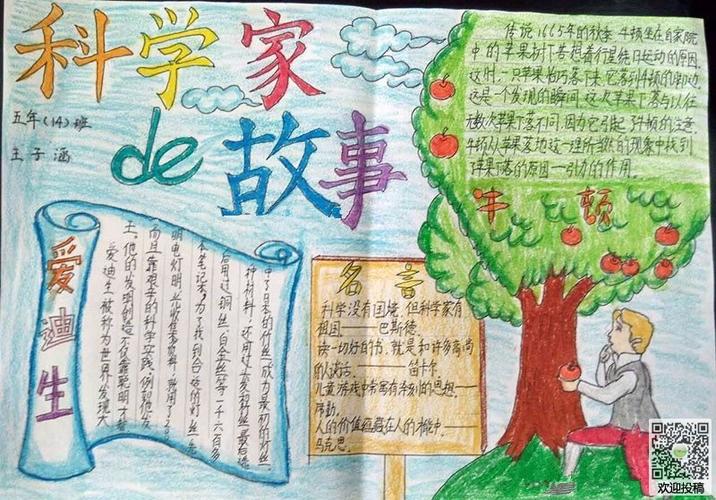 科学家
de 故事
五年(14)班
王子涵
传说1665年的秋季,牛顿坐在自家院
中的苹果树下苦想着行星绕日运动的原因.
这时,一只苹果恰巧落下来,它落到牛顿的脚边.
这是一个发现的瞬间,这次苹果下落与以往
无数次苹果下落不同,因为它引起了牛顿的注意.
牛顿从苹果落地这一理所当然的现象中找到
苹果下落的原因—引力的作用。
牛顿
爱迪生
爱迪生被称为世界发明大
王。他的发明创造不仅靠聪明才智
而且靠艰辛的科学实践,例如他发
明电灯时光收集资料,就用了200
本笔记本,为了找到合适的灯丝,先
后用过铜丝、白金丝等一千六百多
种材料,还用过人发和竹丝,最后选
中了日本的竹丝,成为最初的灯丝.
名言
科学没有国境,但科学家有
祖国——巴斯德.
读一切好的书,就是和许多高尚
的人谈话.——笛卡尔.
儿童游戏中常寓有深刻的思想—
席勒.
人的价值蕴藏在人的才能中.——
马克思.
欢迎投稿